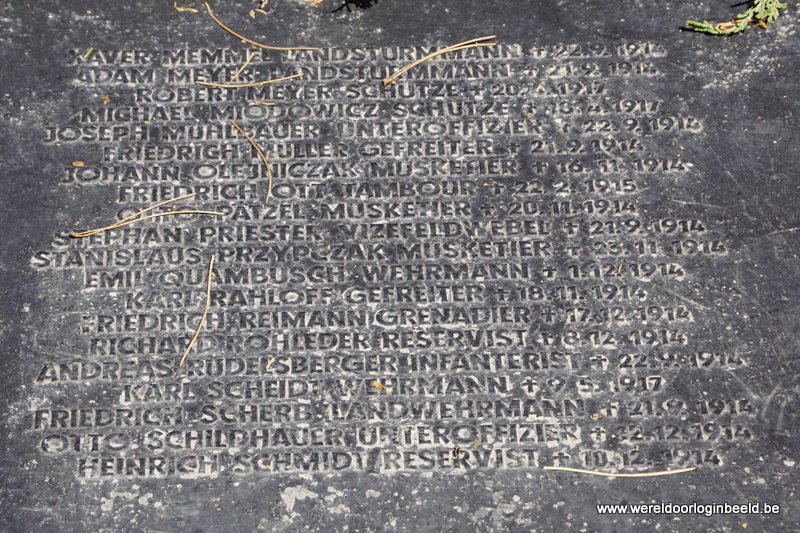 XAVER MEMMEL LANDSTURMMANN † 22.9.1914
ADAM MEYER LANDSTURMMANN † 21.9.1914
ROBERT MEYER SCHÜTZE † 20.7.1917
MICHAEL MIODOWICZ SCHÜTZE † 1917
JOSEPH MÜHLBAUER UNTEROFFIZIER † 22.9.1914
FRIEDRICH MÜLLER GEFREITER † 21.9.1914
JOHANN OLEJNICZAK MUSKETIER † 16.11.1914
FRIEDRICH OTT TAMBOUR † 22.2.1915
PATZEL MUSKETIER † 20.11.1914
STEPHAN PRIESTER VIZEFELDWEBEL † 21.9.1914
STANISLAUS PRZYPCZAK MUSKETIER † 23.11.1914
EMIL QUAMBUSCH WEHRMANN † 1.12.1914
KARL RAHLOFF GEFREITER † 18.11.1914
FRIEDRICH REIMANN GRENADIER † 17.12.1914
RICHARD ROHLEDER RESERVIST † 8.12.1914
ANDREAS RUDELSBERGER INFANTERIST † 22.9.1914
KARL SCHEIDT WEHRMANN † 9.5.1917
FRIEDRICH SCHERB LANDWEHRMANN † 21.9.1914
OTTO SCHILDHAUER UNTEROFFIZIER † 12.12.1914
HEINRICH SCHMIDT RESERVIST † 10.12.1914
www.wereldoorloginbeeld.be